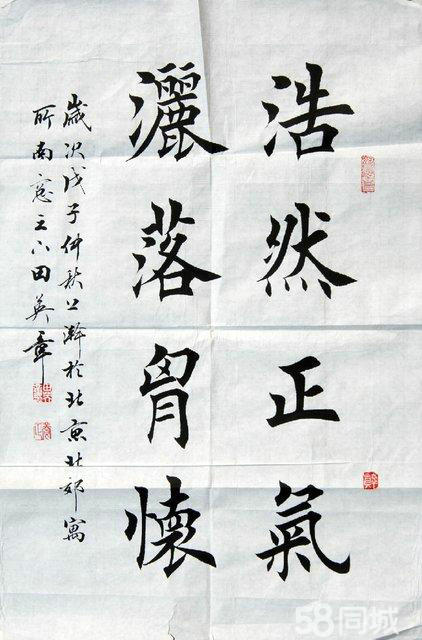 浩然正氣
灑落胷懷
歲次戊子仲秋上澣於北京北郊寓
所南窓之下田英章
58同城